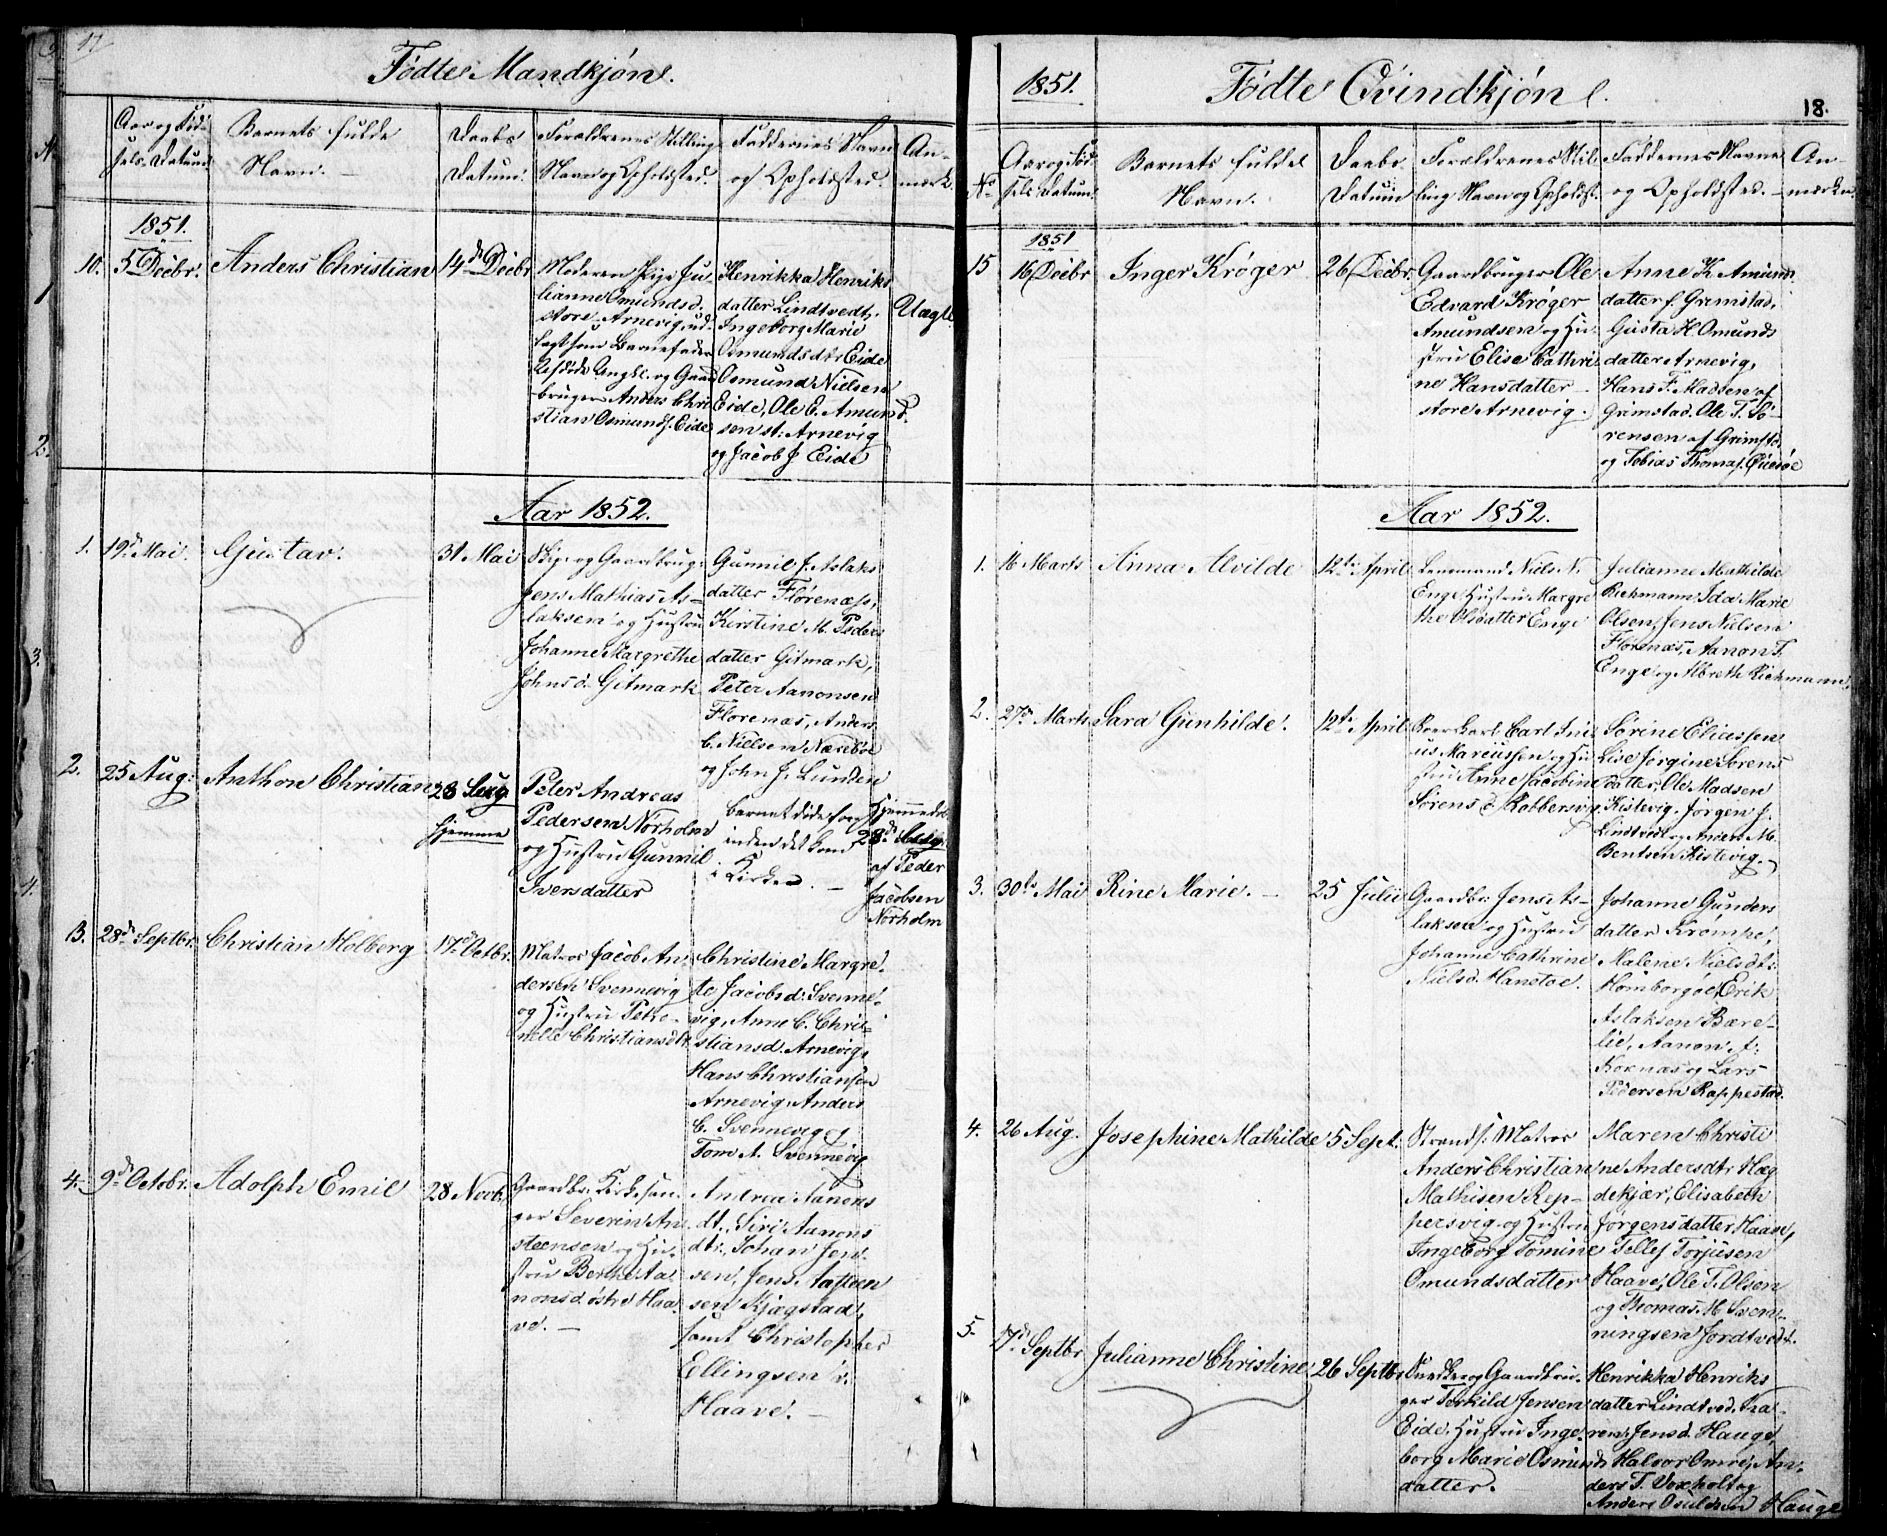 17
Fødte Mandkjøn.
No
Aar og Fød-
sels-Datum.
Barnets fulde
Navn.
Daabs
Datum.
Forældrenes Stilling
Navn og Opholdsted.
Faddernes Navn
og Opholdsted.
An-
mærk.
1851.
10.
5 Decbr.
Anders Christian
14de Decbr
Moderen Pige Ju-
lianne Omundsd.
store Arnevig, ud-
lagt som Barnefader
Afdøde Ungkl. og Gaard
bruger Anders Chri
stian Osmunds. Eide
Henrikka Henriks
datter Lindtvedt,
Ingeborg Marie
Osmundsdtr Eide
Osmund Nielsen
Eide, Ole E. Amund
sen st: Arnevig
og Jacob J Eide
Uægte
Aar 1852.
1.
19de Mai
Gustav.
31 Mai
Skip. og Gaardbrug:
Jens Mathias As-
laksen og Hustru
Johanne Margrethe
Johnsd. Gitmark
Gunnil J. Aslaks
datter Flørenæss,
Kirstine M. Peders
datter Gitmark,
Peter Aanonsen
Florenæs, Anders
C. Nielsen Nærebøe
og John J. Lunden
2.
25 Aug:
Anthon Christian
28 Aug.
hjemme
Peter Andreas
Pedersen Norholm
og Hustru Gunnil
Iversdatter
Barnet døde for
inden det kom
i Kirken.
Hjemmedøbt
28de Aug.
af Peder
Jacobsen
Norholm
3.
28de Septbr.
Christian Holberg
17de Octbr.
Matros Jacob An-
dersen Svennevig
og Hustru Petro-
nelle Christiansdtr
Christine Margre-
te Jacobsd. Svenne-
vig, Anne C. Chris-
tiansd. Arnevig,
Hans Christiansen
Arnevig, Anders
C. Svennevig,
Tom A. Svennevig
4.
9de Octbr.
Adolph Emil
28 Novb.
Gaardbr. Kirkesan-
ger Severin An-
steensen og Hu-
stru Berthe Aa
nonsd østre Haa-
ve.
Andrea Aanons
dt., Siri Aanons
dtr., Johan Jen-
sen, Jens Aasteen
sen Kjøgstad,
samt Christopher
Ellingsen
Haave.
1851.
Fødte Qvindkjøn.
18.
No
Aar og Fød
sels Datum.
Barnets fulde
Navn.
Daabs-
Datum
Forældrenes Stil-
ling Navn og Opholdst.
Faddernes Navne
og Opholdsted.
An-
mærkn.
1851
15
16 Decbr
Inger Krøger
26 Decbr,
Gaardbruger Ole
Edvard Krøger
Amundsen og Hu-
stru Elise Cathri
ne Hansdatter
store Arnevig.
Anne K. Amund
datter f. Grimstad,
Gusta H. Omunds
datter Arnevig,
Hans F. Madsen af
Grimstad, Ole T. Sø-
rensen af Grimstd.
og Tobias Thomas.
Aar 1852.
1.
16 Marts
Anna Alvilde
12te April
Lensmand Niels N.
Enge, Hustru Margre
the Olsdatter Enge
Julianne Mathilde
Richmann, Ida Marie
Olsen, Jens Nielsen
Florenæs, Aanon T.
Enge og Albreth Richmann.
2.
27de Marts
Sara Gunhilde.
12te April
Carl Juli
us Mariussen og Hu
stru Anne Jacobine
Sørensd. Robbersvig
Sørine Eliassen
Lise Jørgine Sørens
datter, Ole Madsen
Kistevig, Jørgen J.
Lindtvedt og Anders M.
Bentsen Kistevig.
3.
30te Mai
Rine Marie.
25 Julii
Gaardbr. Jens As-
laksen og Hustru
Johanne Cathrine
Nielsd. Hanstoe.
Johanne Gunders
datter Krømpe,
Malene Nielsdt:
Homborgøe, Erik
Aslaksen Bære-
lie, Aanon A.
Kornæs og Lars
Pedersen Rappestad.
4.
26 Aug.
Josephine Mathilde
5 Sept.
Strands. Matros
Anders Christian
Mathisen Rep-
persvig og Hustru
Ingeborg Tomine
Omundsdatter
Maren Christi
ne Andersdtr Hæg
dekjær, Elisabeth
Jørgensdatter Haave,
Tellef Torjusen
Haave, Ole T. Olsen
og Thomas M Svenn-
ningsen Jordtvedt.
5.
7de Septbr
Julianne Christine
26 Septbr
Snedker og Gaardbru-
ger Terkild Jensen
Eide, Hustru Inge-
borg Marie Osmunds
datter.
Henrikka Henriks
datter Lindtved, Ka-
ren Jensd. Hauge,
Halvor Omre, An-
ders T. Voxholt og
Anders Osuldsen Hauge